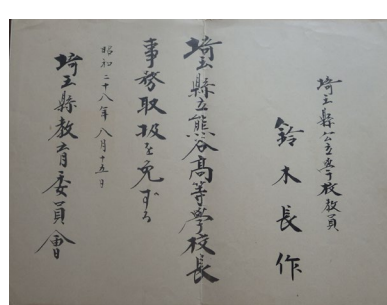 埼玉縣公立學校教員
鈴木長作
埼玉縣立熊谷高等學校長
事務取扱を免ずる
昭和二十八年八月十五日
埼玉縣教育委員會